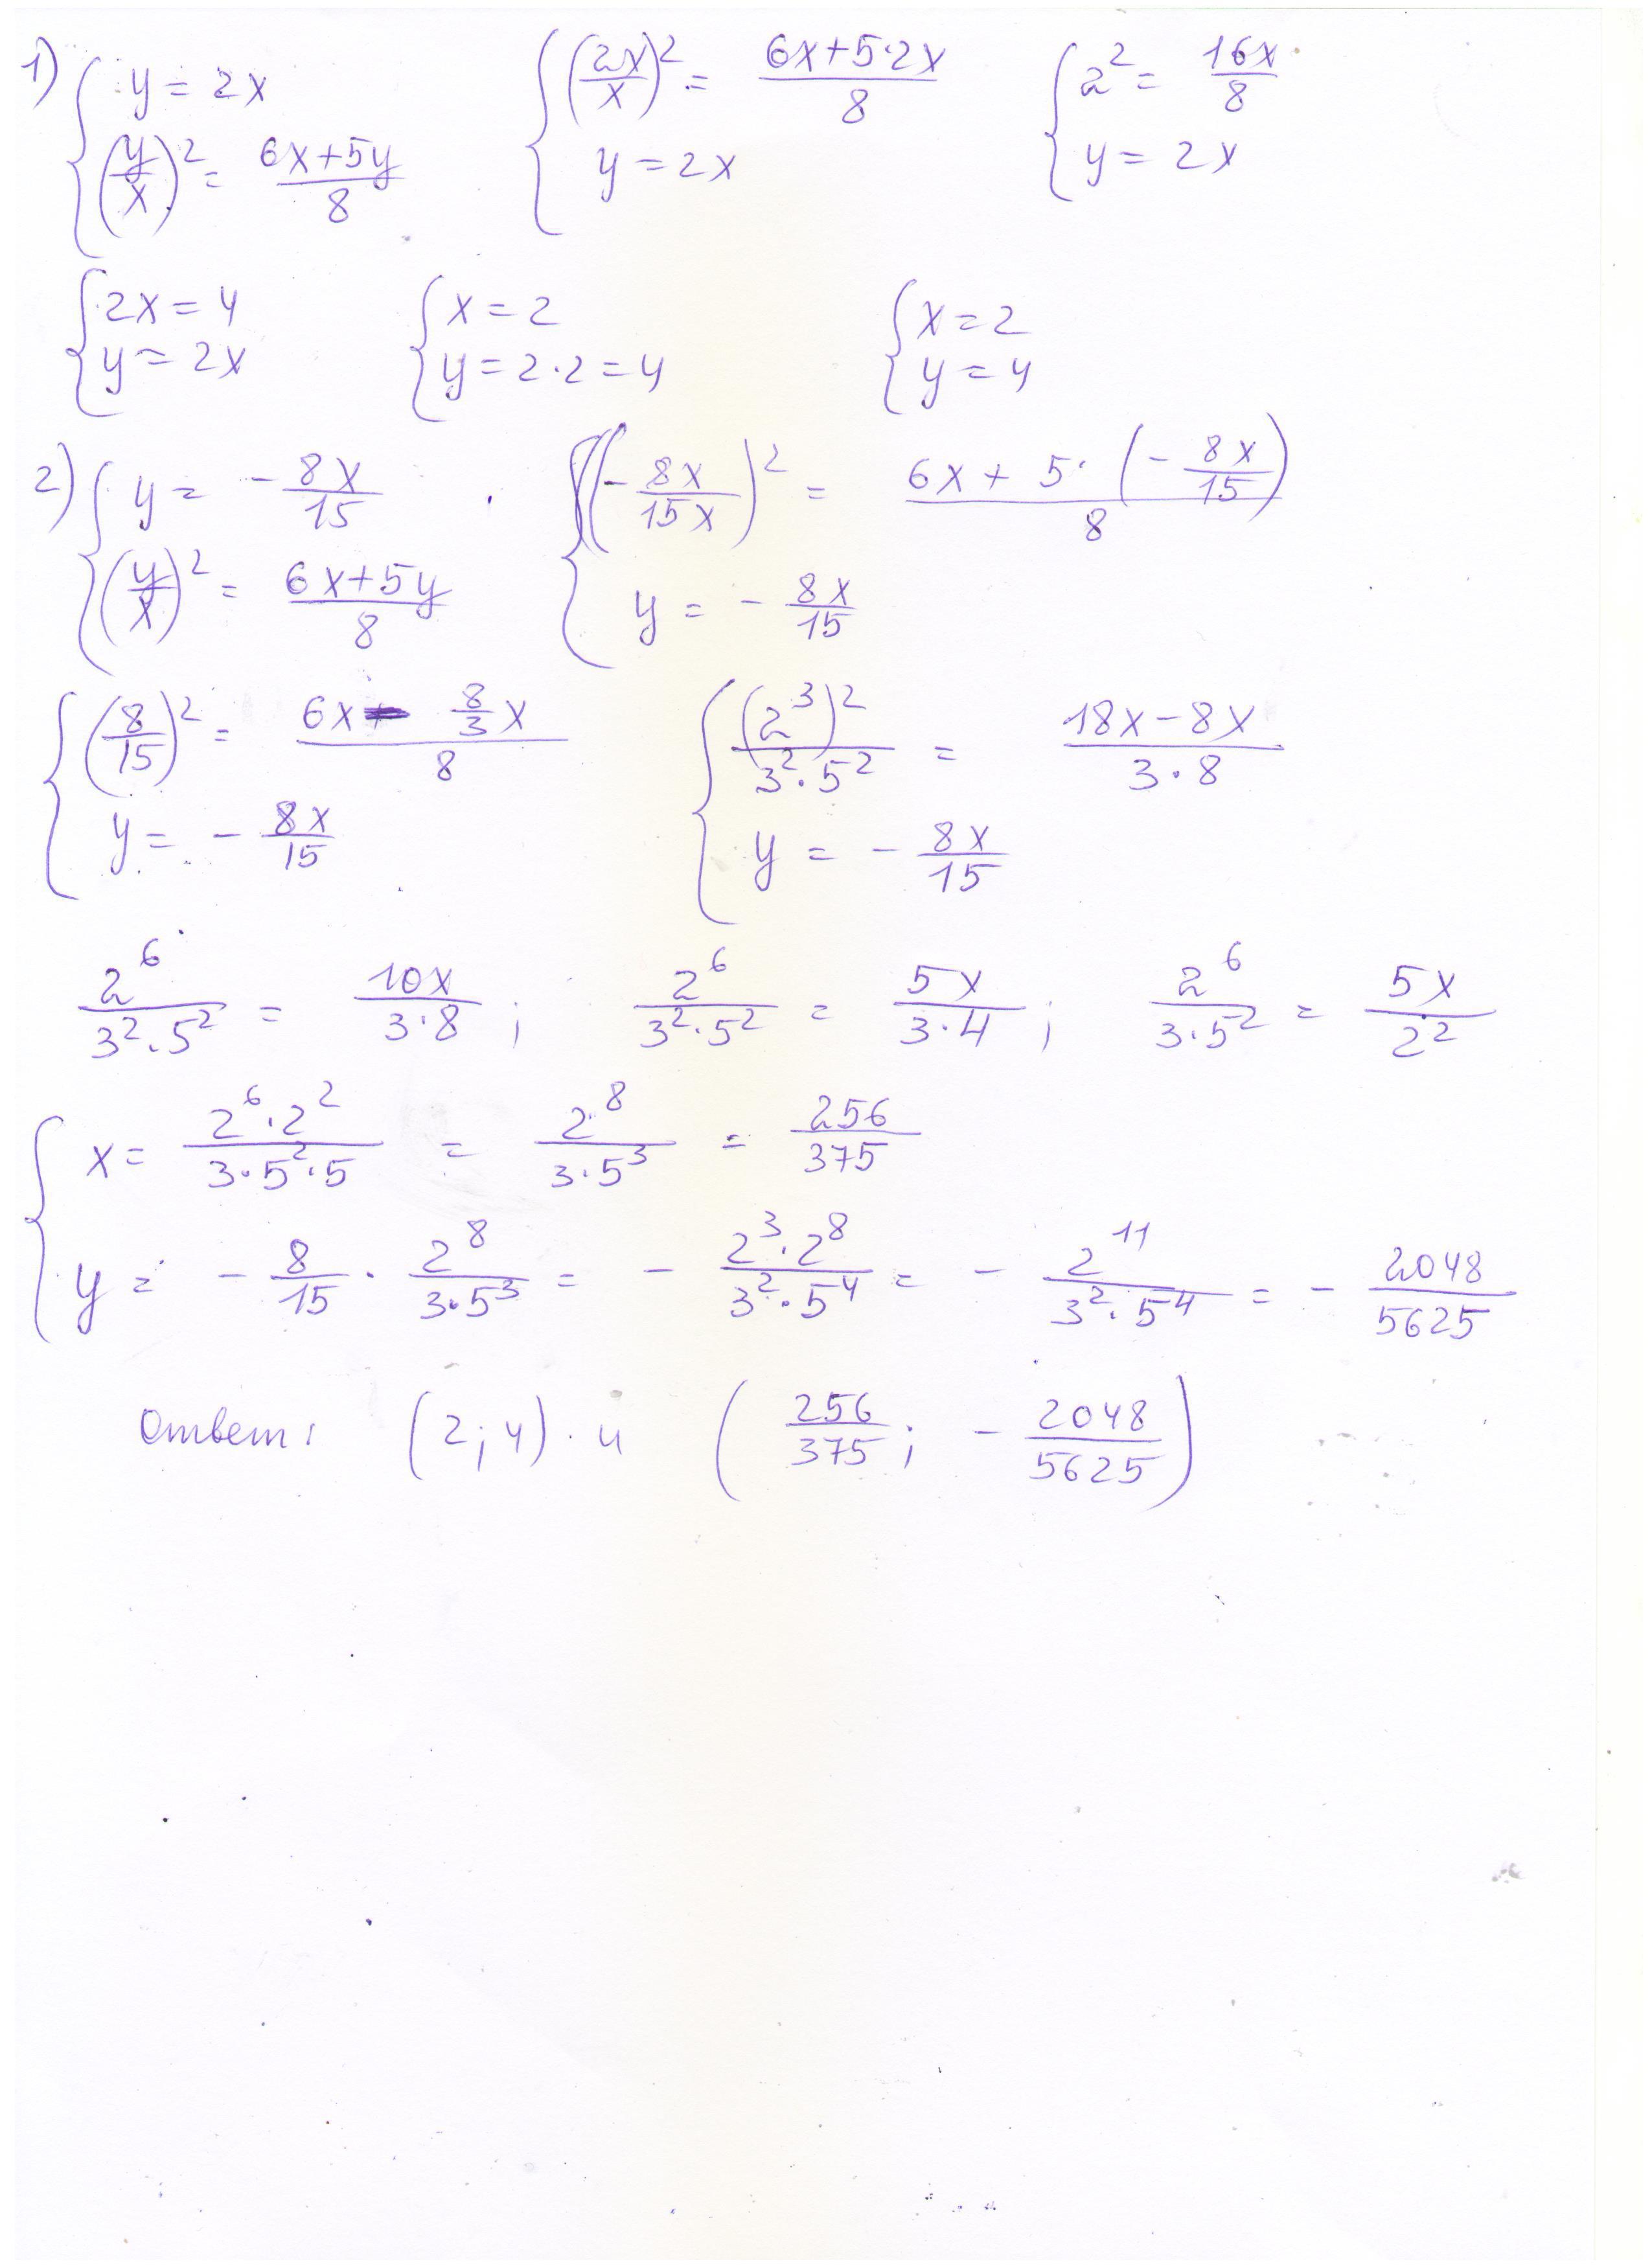 1) { y = 2x ; (y/x)² = (6x+5y)/8    { (2x/x)² = (6x+5·2x)/8 ; y = 2x    { 2² = 16x/8 ; y = 2x
{ 2x = 4 ; y = 2x    { x = 2 ; y = 2·2 = 4    { x = 2 ; y = 4
2) { y = - 8x/15 ; (y/x)² = (6x+5y)/8    { (- 8x/15x)² = (6x + 5·(- 8x/15))/8 ; y = - 8x/15
{ (8/15)² = (6x - 8/3 x)/8 ; y = - 8x/15    { (2³)²/(3²·5²) = (18x-8x)/(3·8) ; y = - 8x/15
2⁶/(3²·5²) = 10x/(3·8) ;    2⁶/(3²·5²) = 5x/(3·4) ;    2⁶/(3·5²) = 5x/2²
{ x = (2⁶·2²)/(3·5²·5) = 2⁸/(3·5³) = 256/375
y = - 8/15 · 2⁸/(3·5³) = - (2³·2⁸)/(3²·5⁴) = - 2¹¹/(3²·5⁴) = - 2048/5625
Ответ: (2; 4) и (256/375; - 2048/5625)